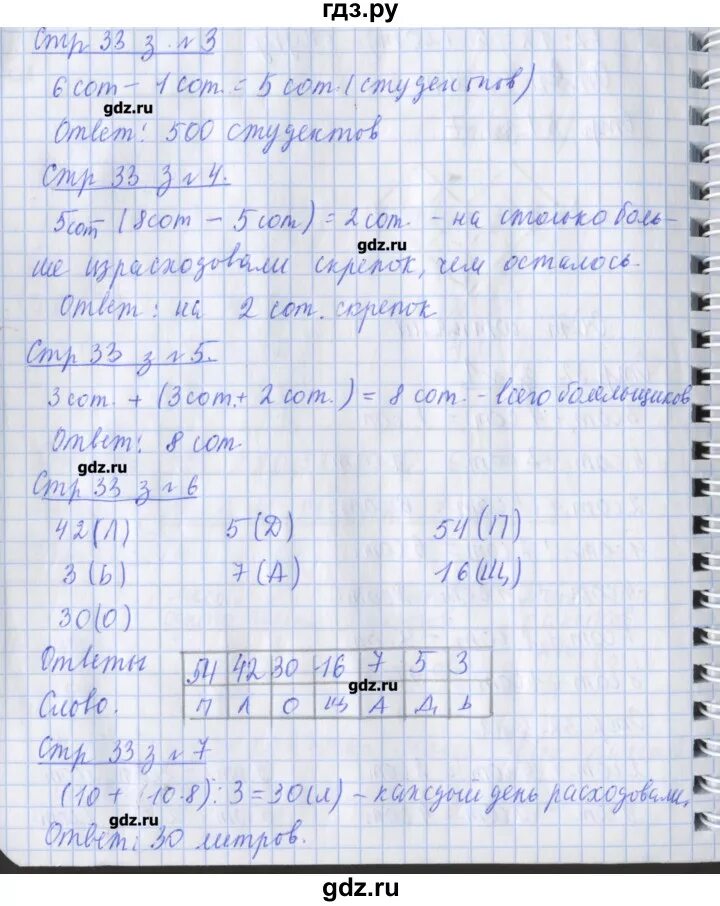 гдз.ру
Стр 33 з. №3
6 сот – 1 сот. = 5 сот. (студентов)
gdz.ru
Ответ: 500 студентов
Стр 33 з №4.
5 сот – (8 сот – 5 сот) = 2 сот. – на столько боль-
gdz.ru
ше израсходовали скрепок, чем осталось.
Ответ: на 2 сот. скрепок
Стр 33 з №5.
3 сот. + (3 сот. + 2 сот.) = 8 сот. – всего болельщиков
Ответ: 8 сот.
gdz.ru
Стр 33 з №6
42(Л) 5(Д) 54(П)
3(Ь) 7(А) 16(Щ)
30(О)
Ответы 54 42 30 16 7 5 3
gdz.ru
Слово. П Л О Щ А Д Ь
Стр 33 з №7
(10 + (10·8)):3 = 30(л) – каждый день расходовали.
gdz.ru
Ответ: 30 литров.
gdz.ru